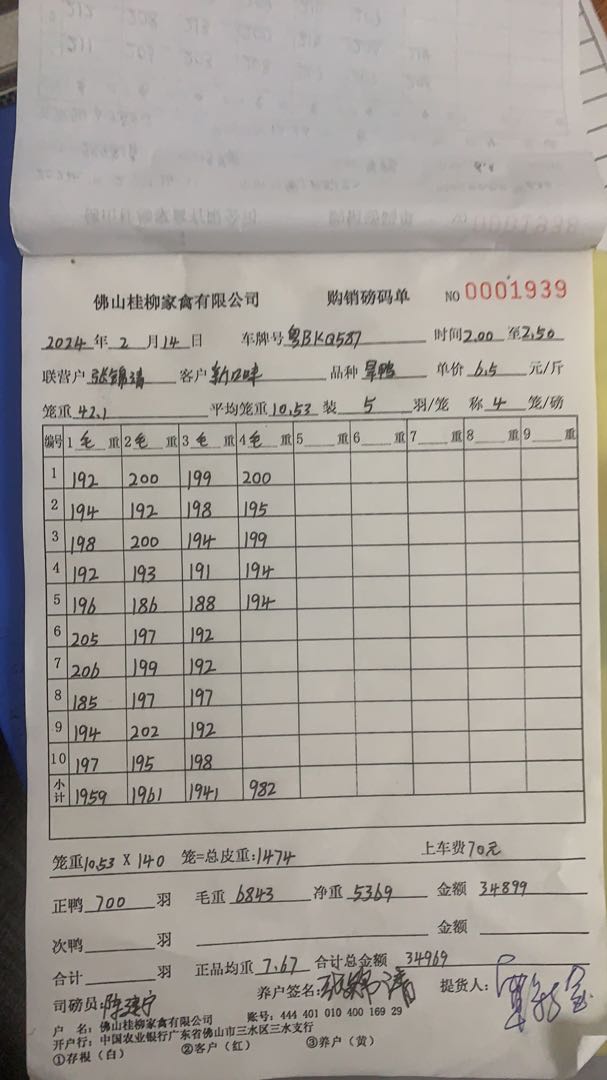 佛山桂柳家禽有限公司 购销磅码单 NO 0001939
2024 年 2 月 14 日 车牌号 粤BKQ587 时间 2.00 至 2.50
联营户 张锦清 客户 新口味 品种 旱鸭 单价 6.5 元/斤
笼重 42.1 平均笼重 10.53 装 5 羽/笼 称 4 笼/磅
编号 1 毛 重 2 毛 重 3 毛 重 4 毛 重 5 重 6 重 7 重 8 重 9 重
1 192 200 199 200
2 194 192 198 195
3 198 200 194 199
4 192 193 191 194
5 196 186 188 194
6 205 197 192
7 206 199 192
8 185 197 197
9 194 202 192
10 197 195 198
小计 1959 1961 1941 982
笼重 10.53 X 140 笼=总皮重: 1474 上车费 70元
正鸭 700 羽 毛重 6843 净重 5369 金额 34899
次鸭 羽 金额
合计 羽 正品均重 7.67 合计总金额 34969
司磅员: 养户签名: 提货人:
户 名: 佛山桂柳家禽有限公司 账号: 444 401 010 400 169 29
开户行: 中国农业银行广东省佛山市三水区三水支行
①存根(白) ②客户(红) ③养户(黄)